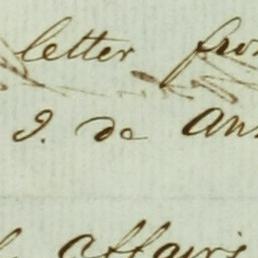 letter from
J. de An
affairs